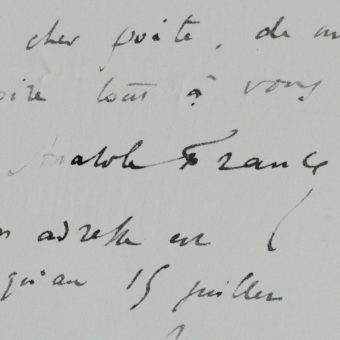 cher poète, de m
oire tout à vous
Anatole France
adresse est
qu'au 15 juillet